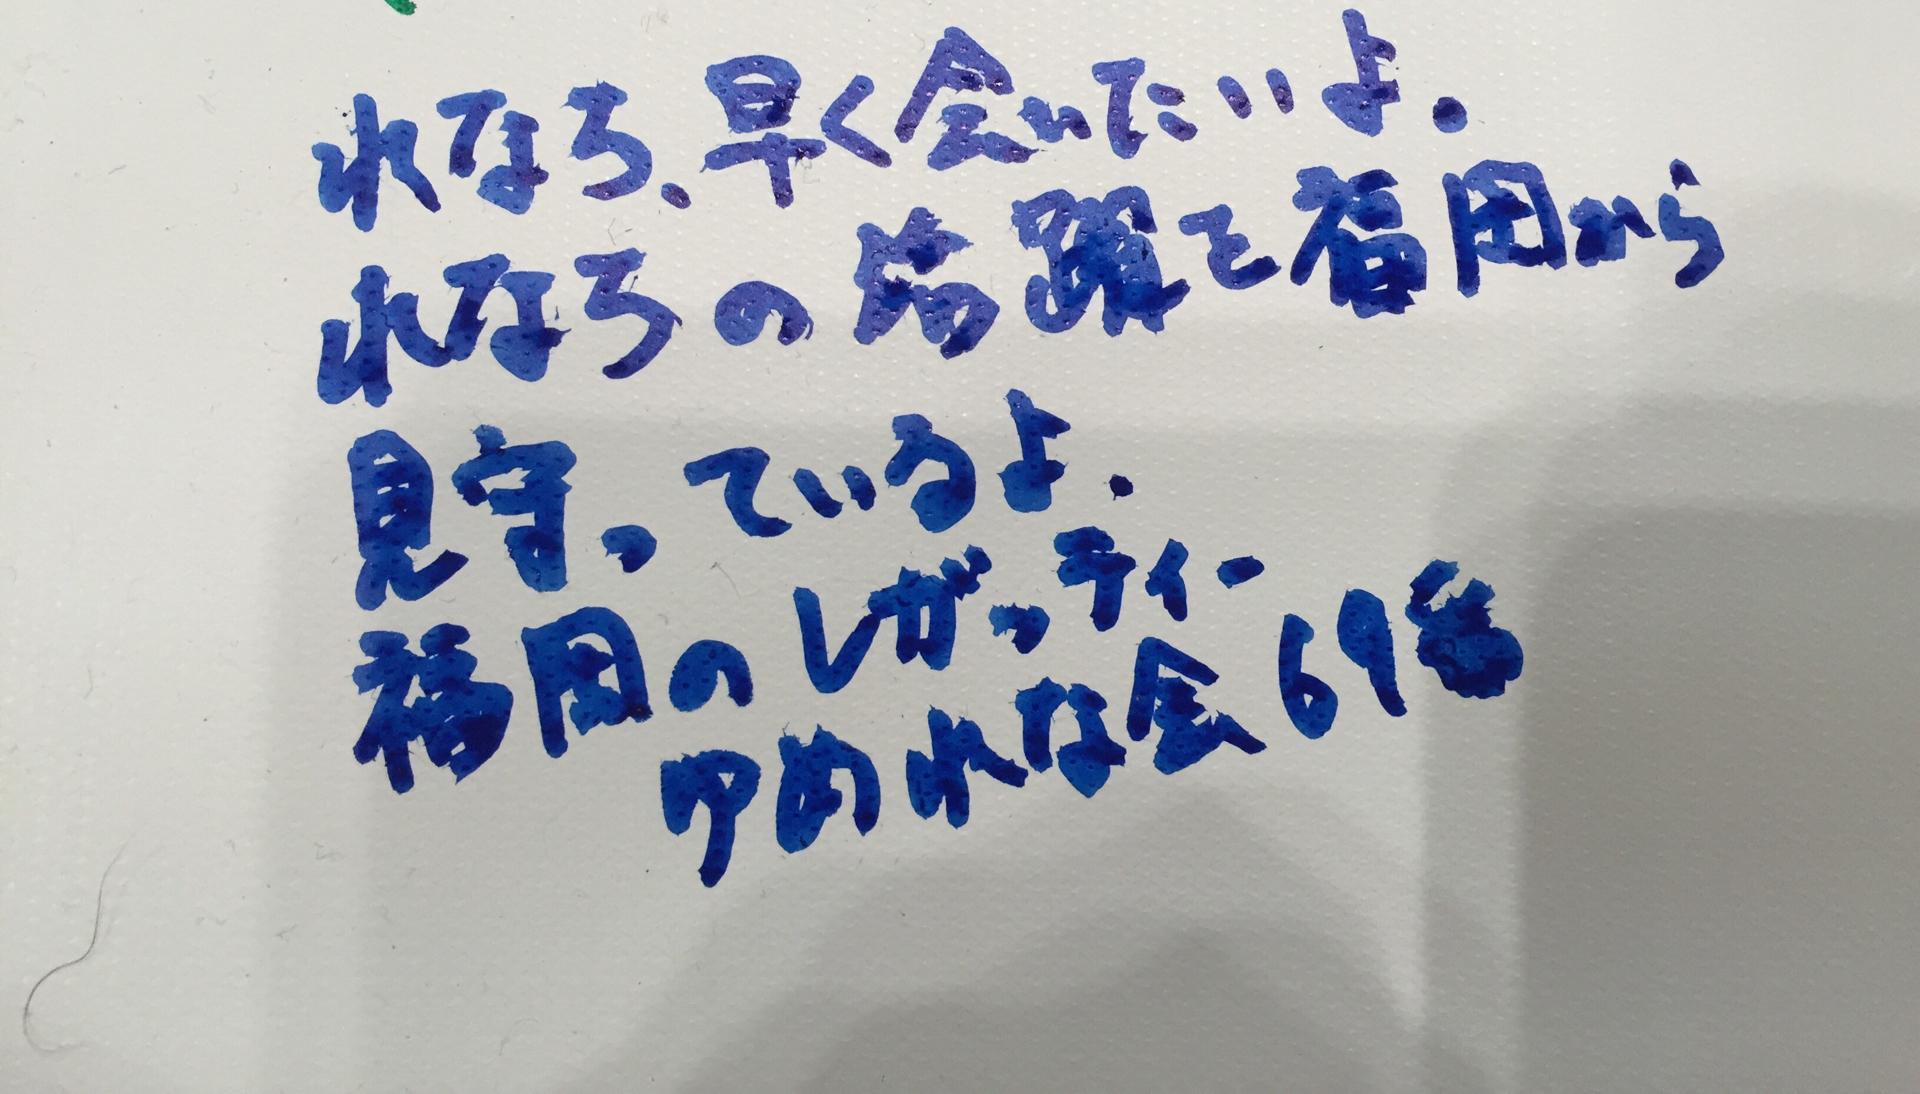 れなち、早く会いたいよ.
れなちの活躍を福岡から
見守っているよ.
福岡のレガッティー
ゆめれな会69番